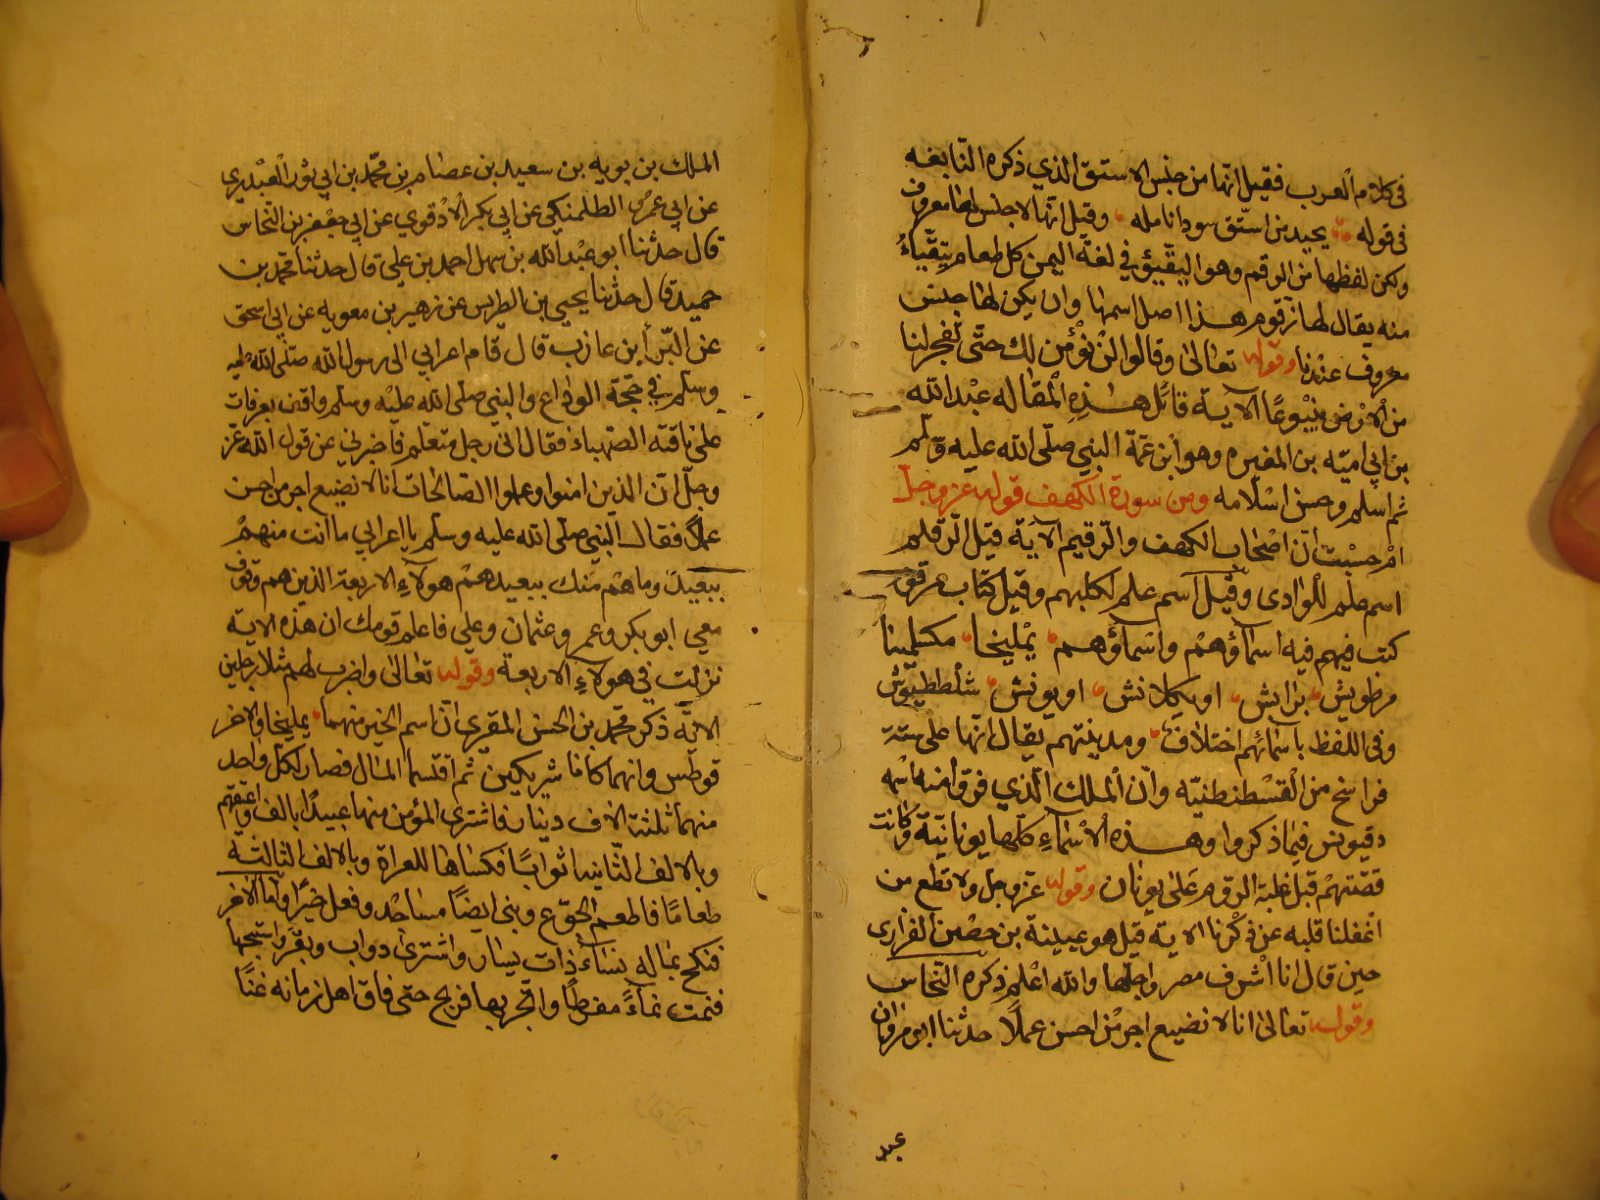 في كلام العرب فقيل انها من جنس الاستق الذي ذكره النابغه
في قوله يحيد من استق سود اسامله وقيل انها لا جنس لها معروف
ولكن لفظها من الرقم وهو اليقيؤ في لغة اليمن كل طعام يتقياء
منه يقال لها زقوم هذا اصل اسمها وان يكن لها جنس
معروف عندنا وقوله تعالى وقالوا لن نؤمن لك حتى تفجر لنا
من الارض ينبوعا الآية قائل هذه المقاله عبد الله
بن ابي اميه بن المغيره وهو ابن عمة النبي صلى الله عليه وسلم
ثم اسلم وحسن اسلامه ومن سورة الكهف قوله عز وجل
ام حسبت ان اصحاب الكهف والرقيم الآية قيل الرقيم
اسم علم للوادي وقيل اسم علم لكلبهم وقيل كتاب مرقوم
كتب فيهم فيه اسماؤهم واسماؤهم يمليخا مكسلمينا
مرطويش برايش اويكلانش اويونش شلططيوش
وفي اللفظ باسمائهم اختلاف ومدينتهم يقال انها على ستة
فراسخ من القسطنطنيه وان الملك الذي فروا منه اسمه
دقيونس فيما ذكروا وهذه الاسماء كلها يونانية وكانت
قصتهم قبل غلبة الروم على يونان وقوله عز وجل ولا تطع من
اغفلنا قلبه عن ذكرنا الاية قيل هو عيينة بن حصين الفزاري
حين قال انا اشرف مضر واجلها والله اعلم ذكره النحاس
وقوله تعالى انا لا نضيع اجر من احسن عملا حدثنا ابو مروان
عبد
الملك بن بويه بن سعيد بن عصام بن محمد بن ابي ثور العبدري
عن ابي عمرو الطلمنكي عن ابي بكر الادقوي عن ابي جعفر بن النحاس
قال حدثنا ابو عبد الله بن سهل احمد بن علي قال حدثنا محمد بن
حميد قال حدثنا يحيى بن الطريس عن زهير بن معويه عن ابي اسحق
عن البرأ بن عازب قال قام اعرابي الى رسول الله صلى الله عليه
وسلم في حجة الوداع والنبي صلى الله عليه وسلم واقف بعرفات
على ناقته الصهباء فقال اني رجل متعلم فاخبرني عن قول الله عز
وجل ان الذين امنوا وعملوا الصالحات انا لا نضيع اجر من احسن
عملا فقال النبي صلى الله عليه وسلم يا اعرابي ما انت منهم
ببعيد وما هم منك ببعيد هم هولاء الاربعة الذين هم وقوف
معي ابو بكر وعمر وعثمان وعلي فاعلم قومك ان هذه الاية
نزلت في هولاء الاربعة وقوله تعالى واضرب لهم مثلا رجلين
الاية ذكر محمد بن الحسن المقري ان اسم الخير منهما يمليخا والاخر
قوطس وانهما كانا شريكين ثم اقتسما المال فصار لكل واحد
منهما ثلثة الاف دينار فاشترى المؤمن منها عبيدا بالف واعتقهم
وبالالف الثانيه اثوابا فكساها للعراة وبالالف الثالثه
طعاما فاطعم الجوع وبنى ايضا مساجد وفعل خيرا واما الاخر
فنكح بماله نساء ذوات يسار واشترى دواب وبقر واستنتجها
فنمت نماء مفرطا واتجر بها فربح حتى فاق اهل زمانه غنا